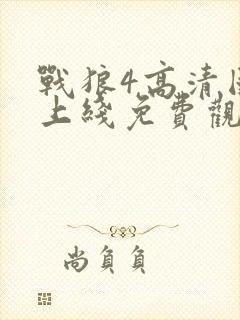 戰狼4高清
上綫免費觀
尚負負